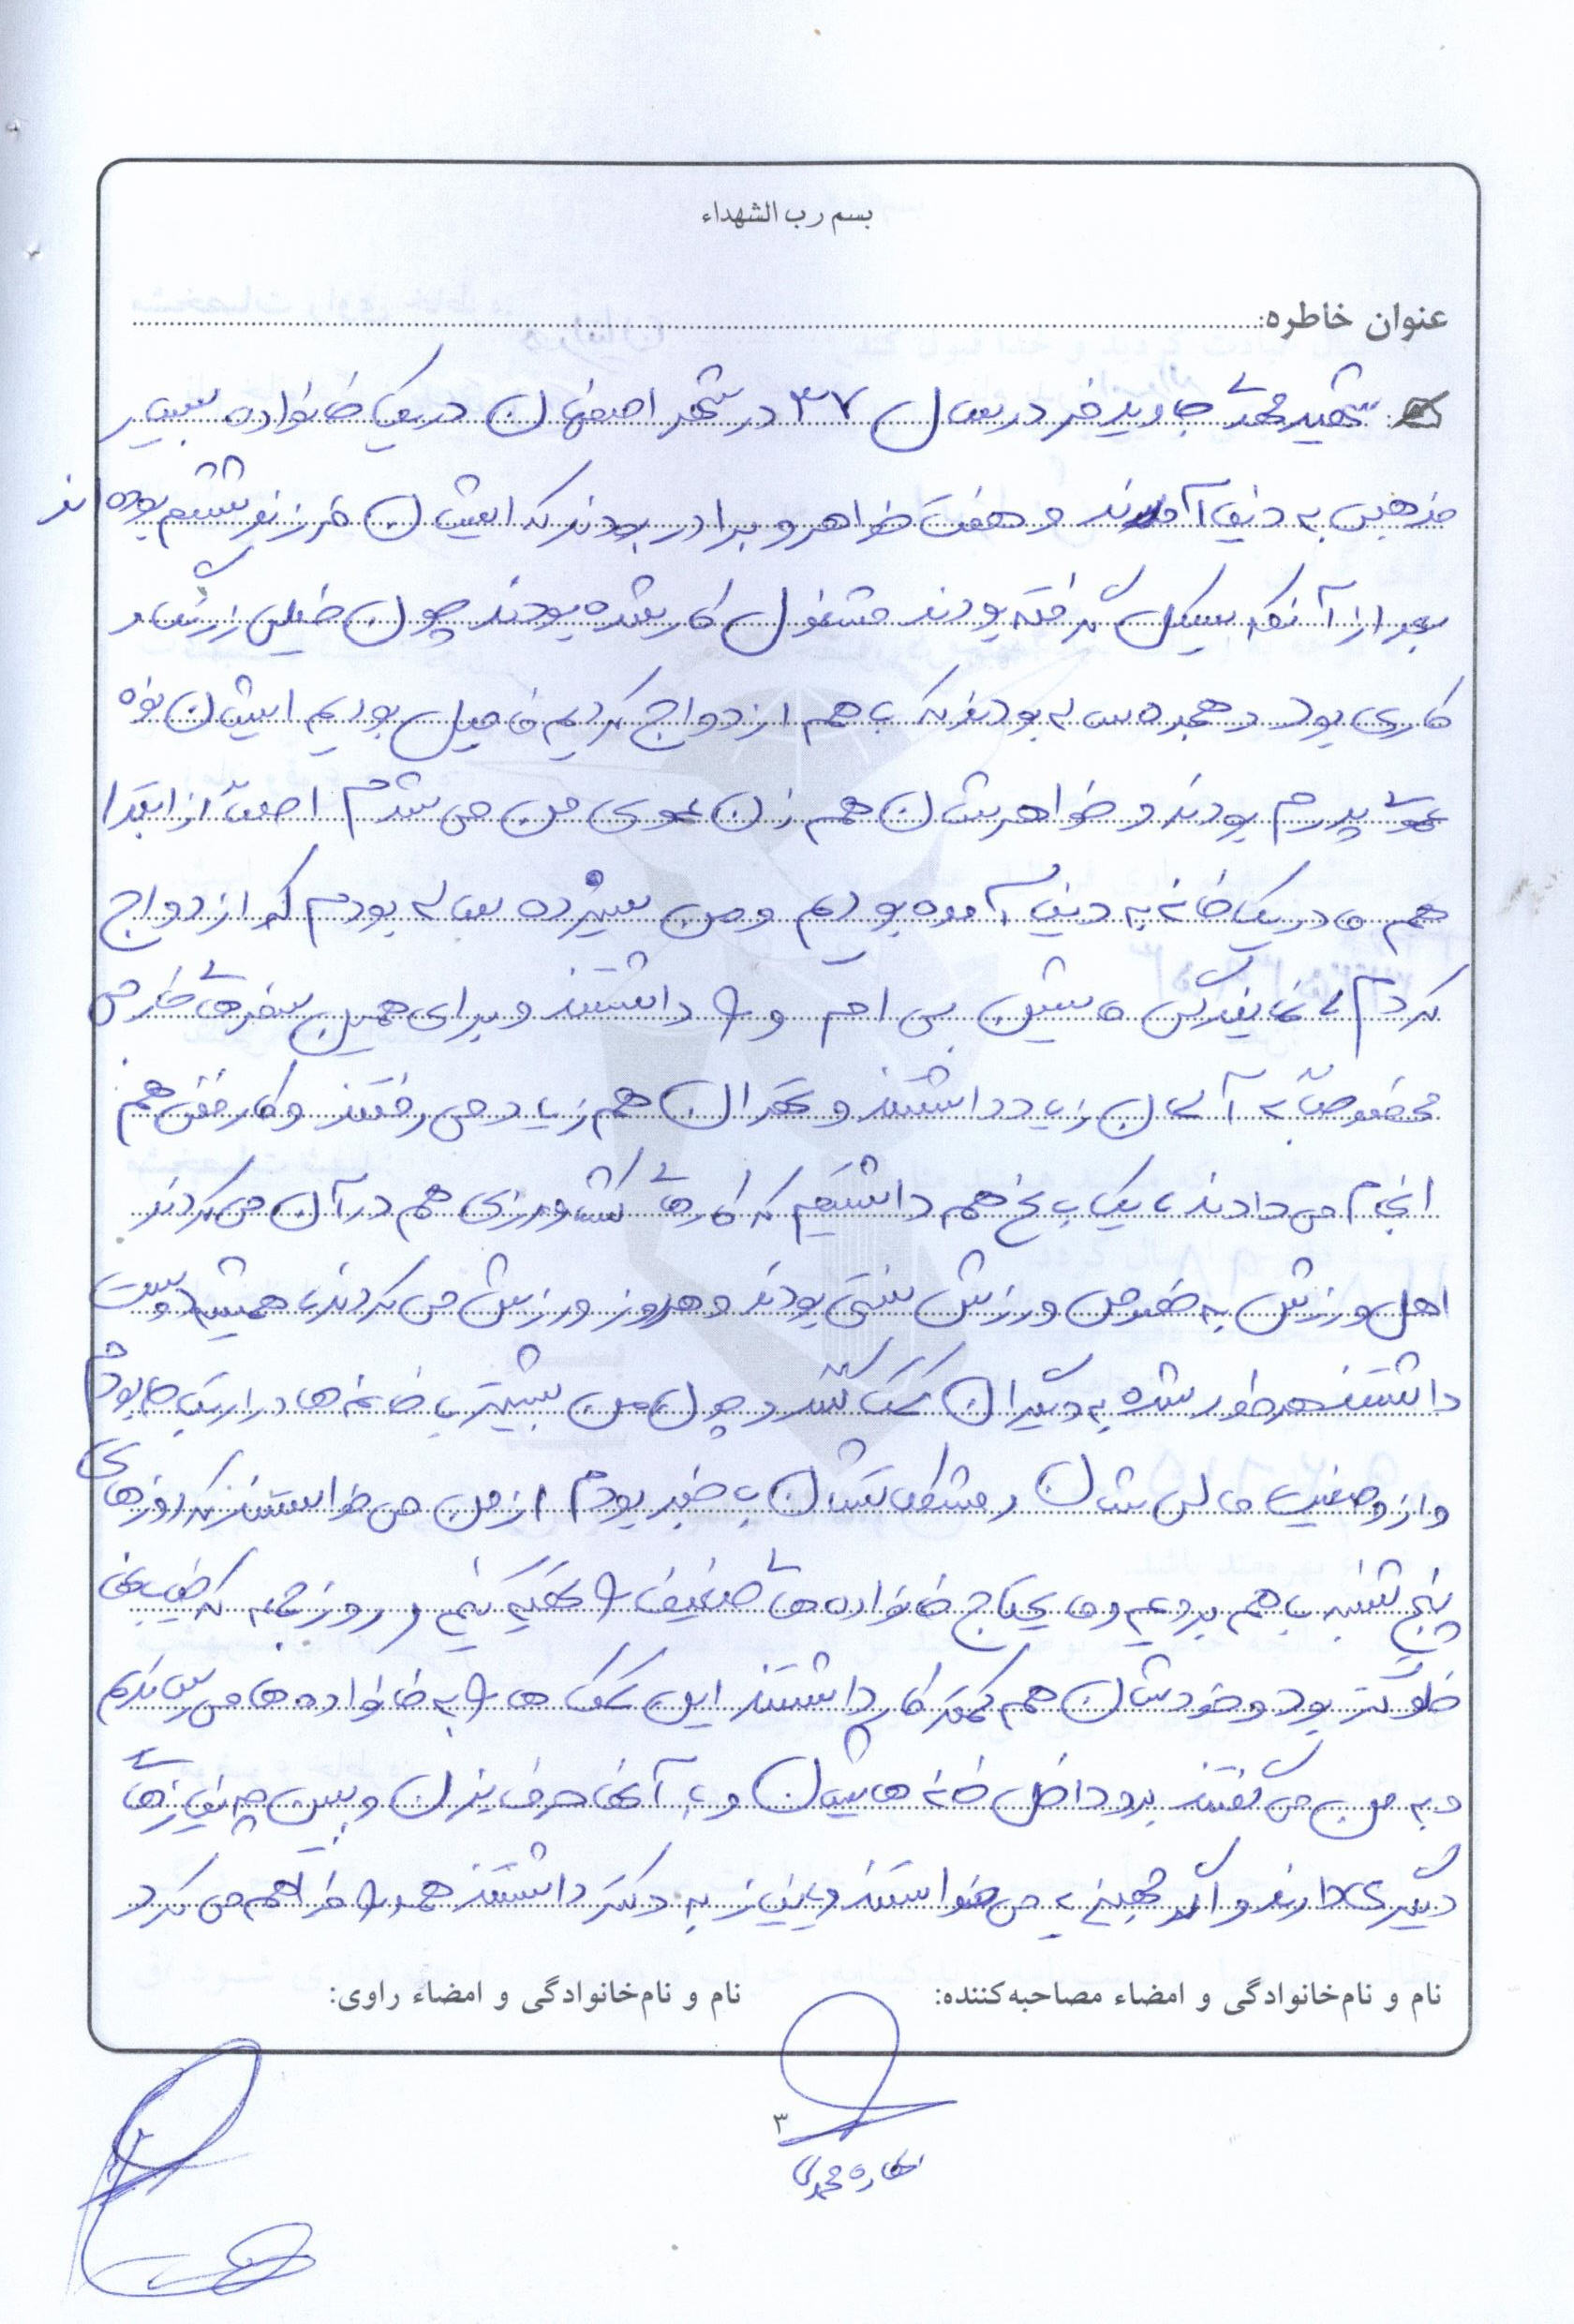 بسم رب الشهداء
عنوان خاطره:
شهید مهدی جاوید فر در سال ۳۷ در شهر اصفهان در یک خانواده بسیار
مذهبی به دنیا آمدند و هفت خواهر و برادر بودند که ایشان فرزند ششم بوده اند
بعد از آنکه سیکل گرفته بودند مشغول کار شده بودند چون خیلی زرنگ و
کاری بود و هجده ساله بودند که با هم ازدواج کردیم فامیل بودیم ایشان نوه
عموی پدرم بودند و خواهرشان هم زن عموی من می شدم اصلاً از ابتدا
هم ما در یک خانه به دنیا آمده بودیم و من سیزده ساله بودم که ازدواج
کردم، نمایندگی ماشین بی ام و را داشتند و برای همین سفرهای خارجی
مخصوصاً به آلمان زیاد داشتند و تهران هم زیاد می رفتند و کار فنی هم
انجام می دادند، یک باغ هم داشتیم که کارهای کشاورزی هم در آن می کردند
اهل ورزش به خصوص ورزش سنتی بودند و هر روز ورزش می کردند، همیشه دوست
داشتند هر طور شده به دیگران کمک کنند و چون من بیشتر با خانم ها در ارتباط بودم
و از وضعیت مالی شان و مشکلاتشان با خبر بودم از من می خواستند که روزهای
پنج شنبه با هم برویم و مایحتاج خانواده های ضعیف را تهیه کنیم و روز جمعه که خیابان
خلوتتر بود و خودشان هم کمتر کار داشتند این کمک ها را به خانواده ها می رساندیم
و به من می گفتند برو داخل خانه هایشان و با آنها حرف بزن و ببین چه نیازهای
دیگری دارند و اگر جهیزیه می خواستند و یا نیاز به دکتر داشتند همه را فراهم می کرد
نام و نام‌خانوادگی و امضاء مصاحبه‌کننده:
نام و نام‌خانوادگی و امضاء راوی:
۳